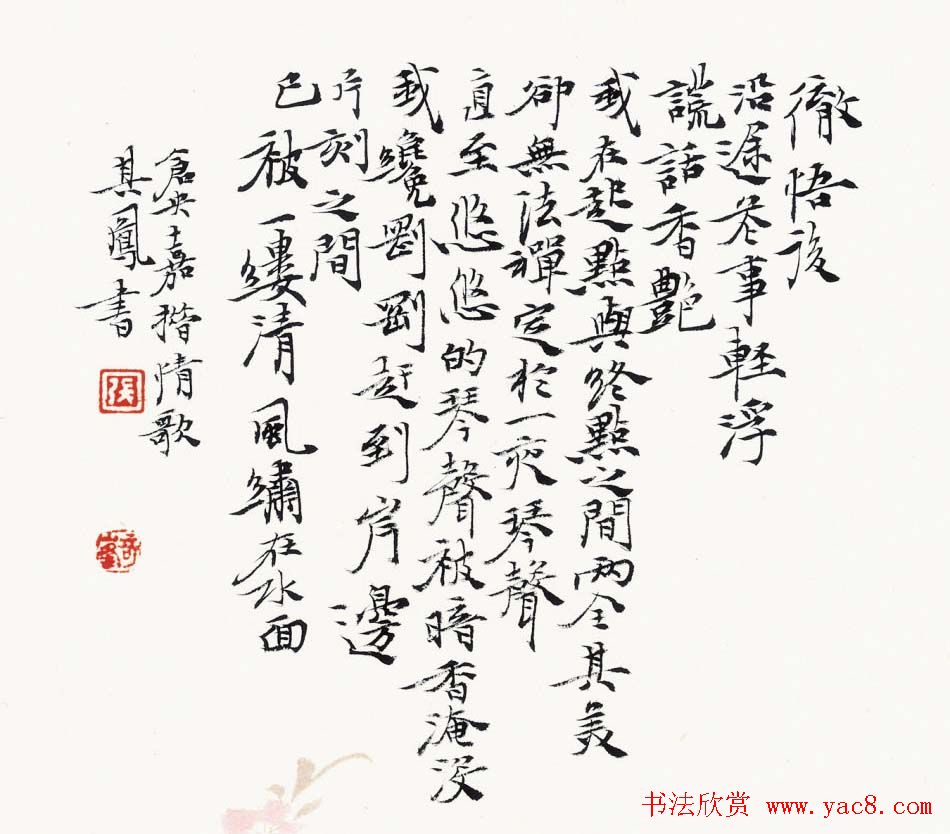 徹悟後
沿途花事軽浮
謊話香艷
我在起點與終點之間两全其美
卻無法禪定於一夜琴聲
直至悠悠的琴聲被暗香淹没
我纔剛剛赶到岸邊
片刻之間
已被一縷清風繡在水面
倉央嘉措情歌
其鳳書
張
书法欣赏 www.yac8.com